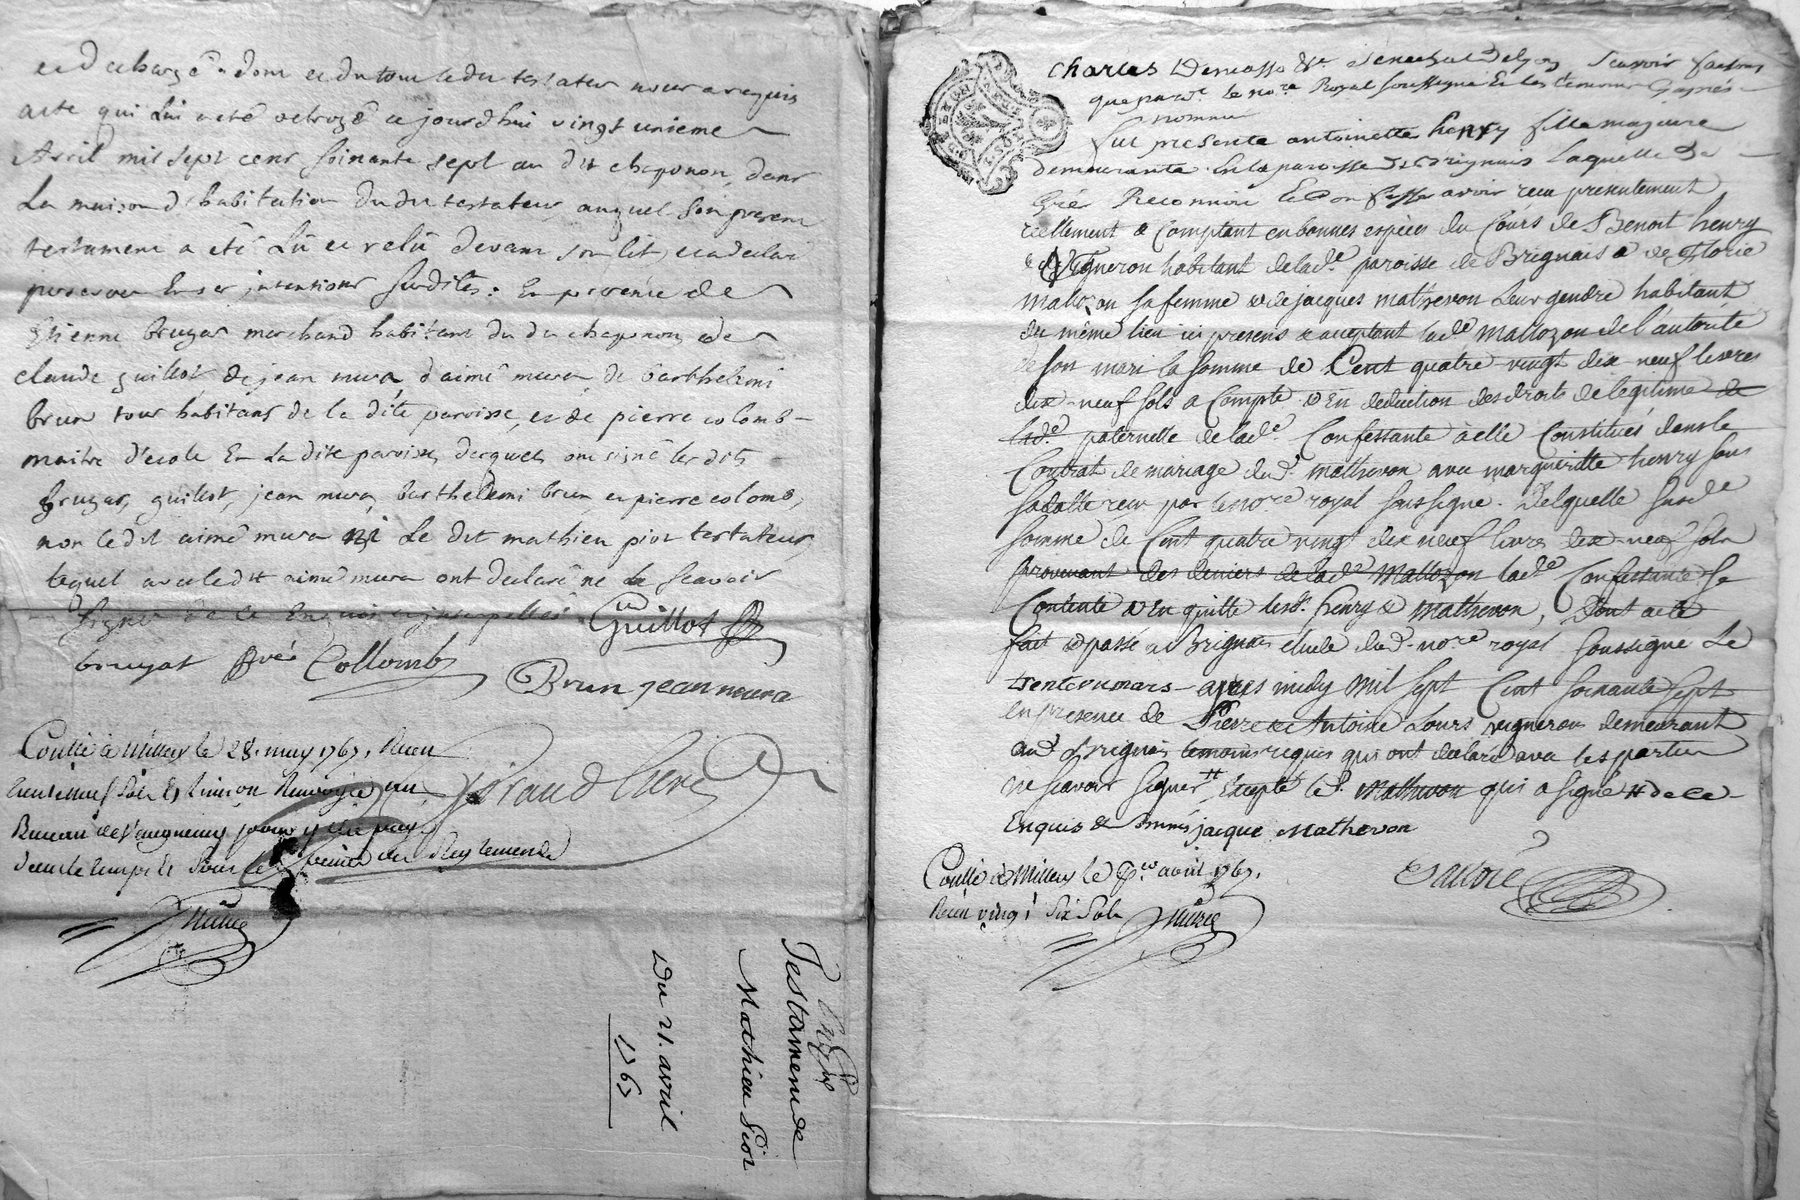 et dechargé. dont et du tout le dit testateur nous a requis
acte qui Lui a été octroyé ce jourd'hui vingt unieme
Avril mil sept cent soixante sept au dit chaponon, dans
La maison d'habitation du dit testateur auquel son present
testament a été Lû et relû devant son lit, et a declaré
perseverer En ses intentions susdites: En presence de
Etienne bruyas marchand habitant du dit chaponon, de
claude guillot de jean mura, d'aimé mura, de barthelemi
brun tous habitans de la dite paroisse, et de pierre colomb
maitre d'ecole En La dite paroisse, desquels ont signé les dits
bruyas, guillot, jean mura, barthelemi brun et pierre colomb,
non le dit aimé mura ni Le dit mathieu piot testateur,
lequel avec le dit aimé mura ont declaré ne Le scavoir
signer de ce Enquis et interpellés Guillot
bruyat Collomb
Brun jean mura
Contlé à Millery le 28. may 1767. Receu
Bureau de
dans le temps & sous les peines des Reglements
Testament de
Mathieu Piot
Du 21. avril
1767
Charles Demasso &c Senechal de Lyon Scavoir faisons
que par dt. le nore. Royal soussigné Et les temoins cy apres
nommés
Fut presente antoinette henry fille majeure
demeurante En la paroisse de Brignais Laquelle de
Gré Reconnu Et Confessé avoir recu presentement
réellement & Comptant en bonnes espèces du Cours de Benoit henry
Vigneron habitant de lade. paroisse de Brignais & de Florie
Mallozon sa femme & de jacques mathevon Leur gendre habitant
du même lieu ici presens & acceptant lade. Mallozon de l'autorité
de son mari la somme de Cent quatre vingt dix neuf livres
dix-neuf sols a Compte & En deduction des droits de legitime de
lade. paternelle de lade. Confessante à elle Constitués dans le
Contrat de mariage dud. mathevon avec marguerite henry sous
sa datte recu par le nore. royal soussigné. De laquelle susde
somme de Cent quatre vingt dix neuf livres dix-neuf sols
provenant des deniers de lade Mallozon lade Confessante se
Contente & En quitte lesd. henry & mathevon, Dont acte
fait & passé a Brignais etude dud. nore royal soussigné Le
trente un mars apres midy Mil sept Cent soixante sept
en presence de Pierre & Antoine Lours vigneron demeurant
aud. Brignais temoins requis qui ont declaré avec les parties
ne scavoir signer Excepté led. Mathevon qui a signé # de ce
Enquis & Sommés jacque Mathevon
Contlé à Millery le 1er avril 1767.
Receu vingt Six Sols